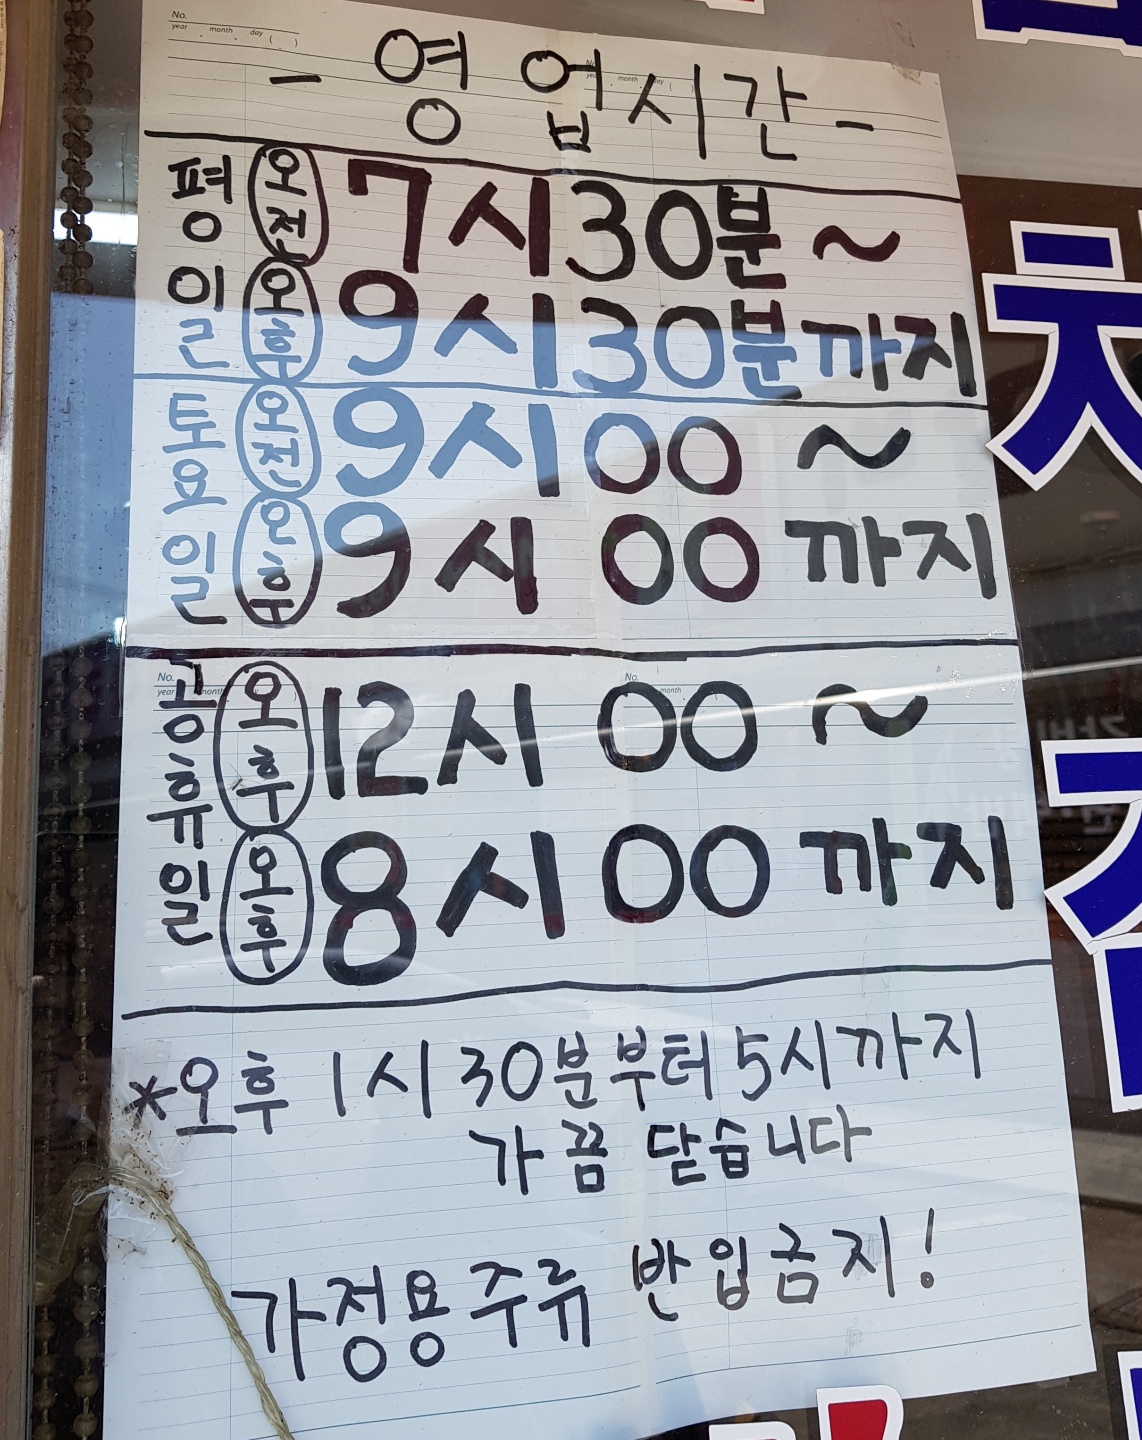 - 영업시간 -
평일 오전 7시 30분 ~
오후 9시 30분까지
토요일 오전 9시 00 ~
오후 9시 00 까지
공휴일 오후 12시 00 ~
오후 8시 00 까지
*오후 1시 30분부터 5시까지
가끔 닫습니다
가정용 주류 반입금지!